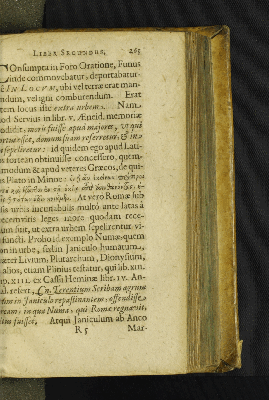 LIBER SECUNDUS, 265
COnsumpta in Foro Oratione, Funus
inde commovebatur, deportabatur-
IN LOCUM, ubi vel terræ erat man-
dandum, vel igni comburendum. Erat
tem locus hic extra urbem. Nam
od Servius in lib. v. Æneid. memoriæ
didit, moris fuisse apud majores, ut qui
domum suam referretur, & in
sepeliretur: id quidem ego apud Lati-
os forteàn obtinuisse concessero, quem-
modum & apud veteres Græcos, de qui-
us Plato in Minoe:
At vero Romæ in
sis urbis incunabulis multò ante latas à
ecemviris leges more quodam rece-
um fuit, ut extra urbem sepelirentur vi-
functi. Probo id exemplo Numæ: quem
on in urbe, sed in Janiculo humatum,
ræter Livium, Plutarchum, Dionysium,
alios, etiam Plinius testatur, qui lib. XIII.
ap. XIII. ex Cassii Heminæ lib. IV. An-
al. refert, Cn. Terentium Scribam agrum
suum in Janiculo repastinantem, offendisse
arcam, in qua Numa, qui Romæ regnavit,
situs fuisset. Atqui Janiculum ab Anco
R 5 Mar-